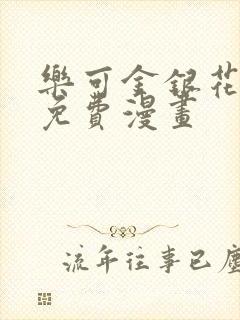 樂可金銀花
免費漫畫
流年往事已塵